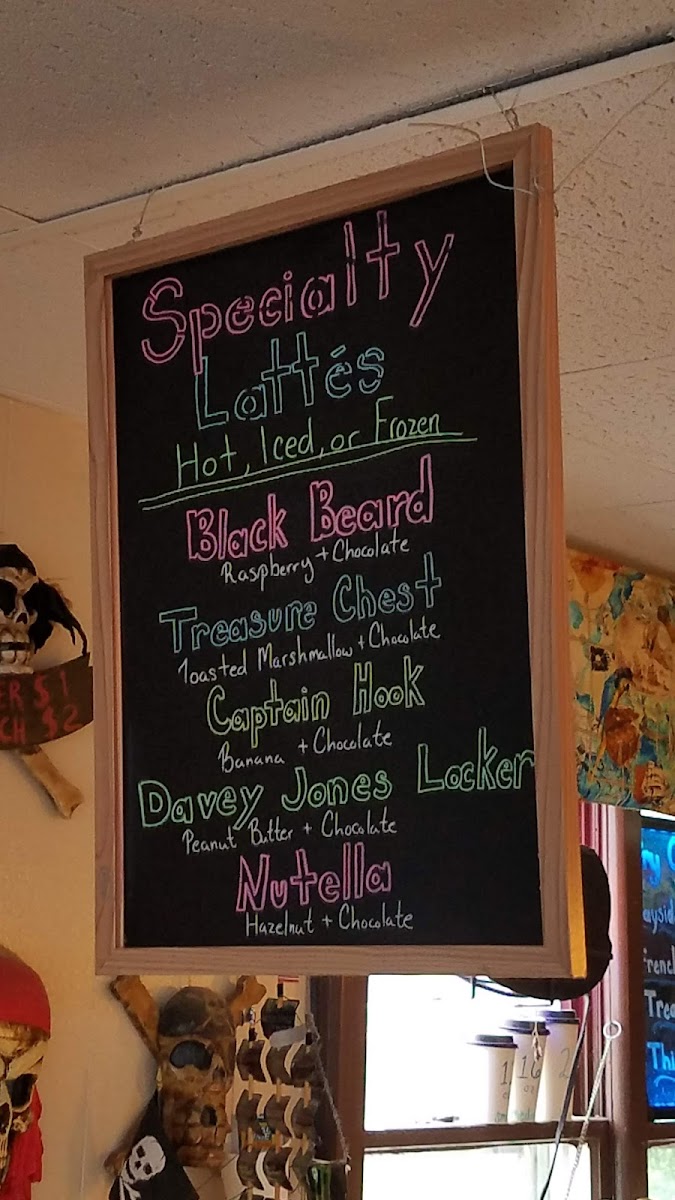 Specialty
Lattés
Hot, Iced, or Frozen
Black Beard
Raspberry + Chocolate
Treasure Chest
Toasted Marshmallow + Chocolate
Captain Hook
Banana + Chocolate
Davey Jones Locker
Peanut Butter + Chocolate
Nutella
Hazelnut + Chocolate
$1
$2
16